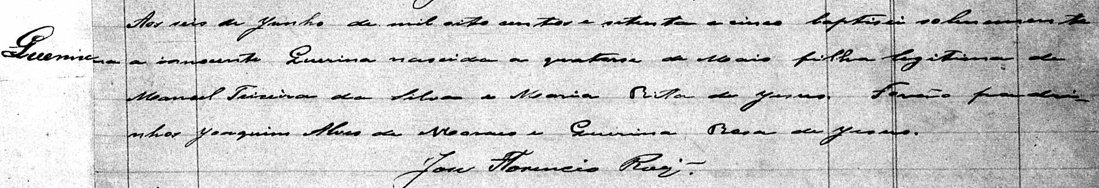 Aos seis de Junho de mil oito centos e setenta e cinco baptisei solemnemente
Guerina a innocente Guerina nascida a quatorse de Maio filha legitima de
Manoel Teixeira da Silva e Maria Rita de Jesus. Forão padri-
nhos Joaquim Alves de Moraes e Guerina Rosa de Jesus.
José Florencio